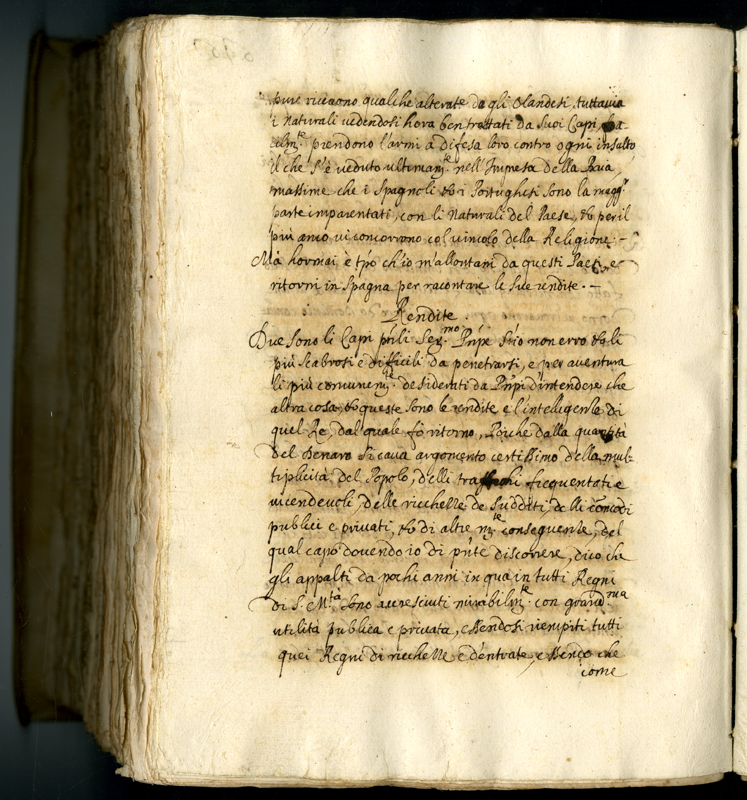 pure ricevono qualche alterate da gli Olandesi, tuttavia
i Naturali vedendosi hora ben trattati da Suoi Capi, fa-
cilm.te prendono l'armi à difesa loro contro ogni insulto
il che s'è veduto ultimam.te nell'Impresa della Baia
massime che i Spagnoli et i Portughesi sono la magg.r
parte imparentati, con li Naturali del Paese, et per il
più anco vi concorrono col vincolo della Religione. –
Mà hormai è tpo ch'io m'allontani da questi Paesi, e
ritorni in Spagna per racontare le sue rendite. –
Rendite.
Due sono li Capi pnli Ser.mo Pnpe s'io non erro et li
più scabrosi e difficili da penetrarsi, e per aventura
li più comunem.te desiderati da Pnpi d'intendere che
altra cosa, et queste sono le rendite e l'intelligenze di
quel Re, dal quale fò ritorno, Poiche dalla quantità
del Denaro si cava argomento certissimo della mul-
tiplicità del Popolo, delli traffichi frequentati e
vicendevoli, delle ricchezze de Sudditi, delli comodi
publici e privati, et di altre m.te conseguenze, del
qual capo dovendo io di pnte discorrere, dico che
gli appalti da pochi anni in qua in tutti Regni
di S. M.tà sono accresciuti mirabilm.te con grand.ma
utilità publica e privata, essendosi riempiti tutti
quei Regni di ricchezze e d'entrate, e Bence che
come